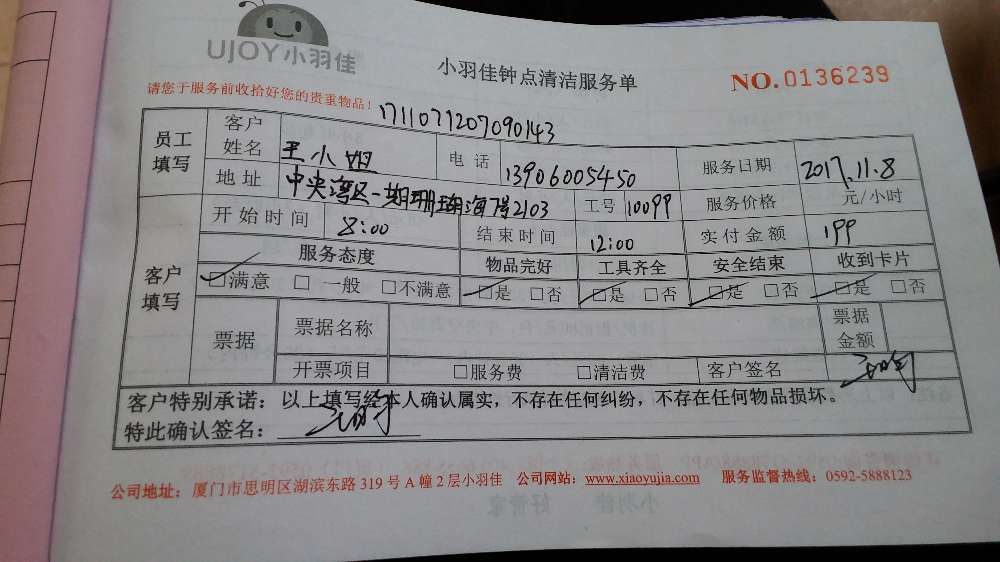 UJOY小羽佳
小羽佳钟点清洁服务单
NO.0136239
请您于服务前收拾好您的贵重物品！
1711071207090143
员工填写 客户姓名 王小姐 电话 13906005450 服务日期 2017.11.8
地址 中央湾区一期珊瑚海7号2103 工号 10099 服务价格 元/小时
客户填写 开始时间 8:00 结束时间 12:00 实付金额 199
服务态度 物品完好 工具齐全 安全结束 收到卡片
☑满意 □一般 □不满意 ☑是 □否 ☑是 □否 ☑是 □否 ☑是 □否
票据 票据名称 票据金额
开票项目 □服务费 □清洁费 客户签名
客户特别承诺：以上填写经本人确认属实，不存在任何纠纷，不存在任何物品损坏。
特此确认签名：
公司地址：厦门市思明区湖滨东路 319 号 A 幢 2 层小羽佳 公司网站：www.xiaoyujia.com 服务监督热线：0592-5888123